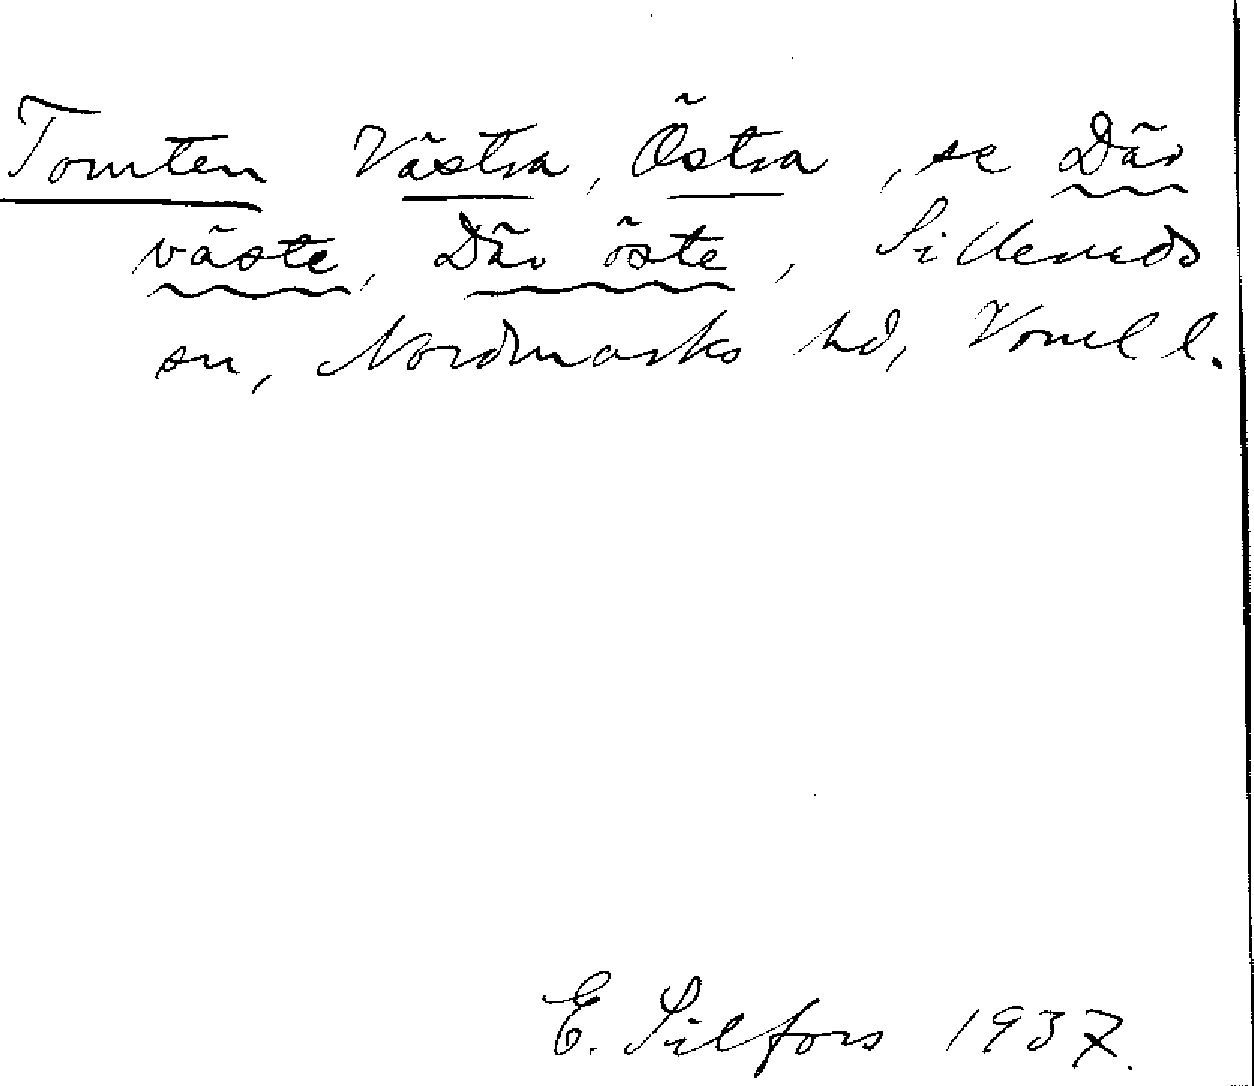 Tomten Västra, Östra, se Där
väste, Där öste, Silleruds
sn, Nordmarks hd, Vrml l.
E. Silfors 1937.